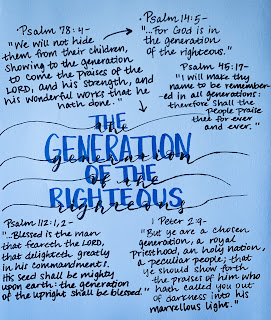 Psalm 78:4-
"We will not hide
them from their children,
showing to the generation
to come the praises of the
LORD, and his strength, and
his wonderful works that he
hath done."
Psalm 14:5-
"...For God is in
the generation
of the righteous."
Psalm 45:17-
"I will make thy
name to be remember-
ed in all generations:
therefore shall the
people praise
thee for ever
and ever."
THE
the
GENERATION
generation
OF THE
of the
RIGHTEOUS
righteous
Psalm 112:1,2-
"...Blessed is the man
that feareth the LORD,
that delighteth greatly
in his commandments.
His seed shall be mighty
upon earth: the generation
of the upright shall be blessed."
1 Peter 2:9-
"But ye are a chosen
generation, a royal
priesthood, an holy nation,
a peculiar people; that
ye should show forth
the praises of him who
hath called you out
of darkness into his
marvellous light."